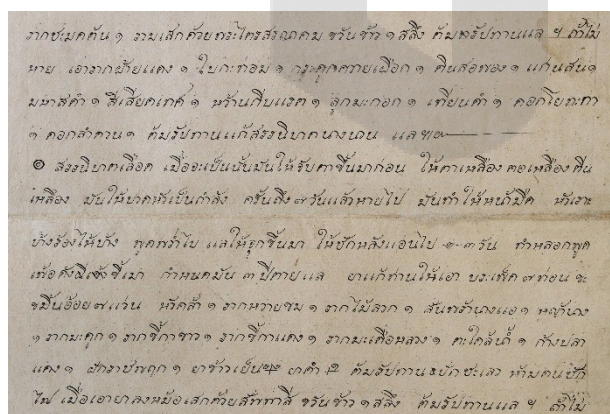 รากชะมดต้น ๑ รามเสกด้วยพระไตรสรณคม ขวันข้าว ๑ สลึง ต้มครัปทานแล ฯ ถ้าไม่
หาย เอารากฝ้ายแดง ๑ ใบกะท่อม ๑ กระดูกควายเผือก ๑ ดินสอพอง ๑ แก่นสน ๑
มหาสดำ ๑ สีเสียดเทศ ๑ หว้านกีบแรด ๑ ลูกมะกอก ๑ เทียนดำ ๑ ดอกโยทะกา
๑ ดอกลำดวน ๑ ต้มรัปทานแก้สรรนิบาตนางนวน แลฯ
๏ สรรนิบาตเลือด เมื่อจะเปนนั้นมันให้จับตาขึ้นมาก่อน ให้ตาเหลือง ตัวเหลือง ตีน
เหลือง มันให้ปวดหัวเปนกำลัง ครั้นถึง ๗ วันแล้วหายไป มันทำให้หน้ามืด หัวเราะ
บ้างร้องไห้บ้าง พูดพร่ำไป แลให้จุกขึ้นมา ให้ชักหลังแอ่นไป ๒-๓ วัน ทำหลอกพูด
เพ้อดังผีเข้าขึ้นมา กำหนดมัน ๓ ปีตายแล ยาแก้ท่านให้เอา บระเพ็ด ๗ ท่อน
ขมิ้นอ้อย ๗ แว่น รากหวายขม ๑ รากไม้ลาก ๑ สันพร้านางแอ ๑ หญ้านาง
๑ รากมะดูก ๑ รากขี้กาขาว ๑ รากขี้กาแดง ๑ รากมะเดื่อหลวง ๑ ตะไคร้น้ำ ๑ ก้างปลา
แดง ๑ ฝักราชพฤก ๑ ยาข้าวเย็น ยาดำ ต้มรัปทาน ห้ามคน
ไฟ เมื่อเอายาลงหม้อเสกด้วยสัพพาสี ขวันข้าว ๑ สลึง ต้มรัปทานแล ฯ ถ้าไม่